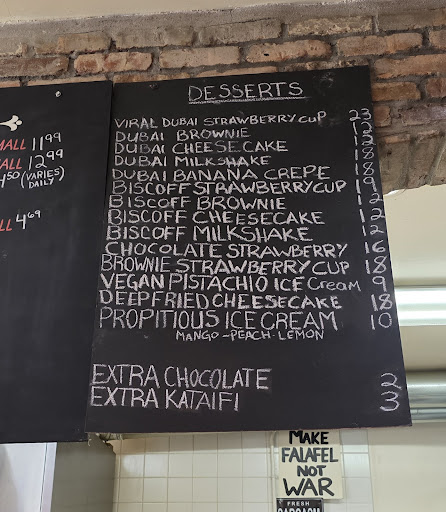 DESSERTS
VIRAL DUBAI STRAWBERRY CUP 23
DUBAI BROWNIE 12
DUBAI CHEESECAKE 12
DUBAI MILKSHAKE 18
DUBAI BANANA CREPE 18
BISCOFF STRAWBERRY CUP 19
BISCOFF BROWNIE 12
BISCOFF CHEESECAKE 12
BISCOFF MILKSHAKE 12
CHOCOLATE STRAWBERRY 16
BROWNIE STRAWBERRY CUP 18
VEGAN PISTACHIO ICE Cream 9
DEEPFRIED CHEESECAKE 18
PROPITIOUS ICE CREAM 10
MANGO-PEACH-LEMON
EXTRA CHOCOLATE 2
EXTRA KATAIFI 3
MALL 11 99
ALL 12 99
4 50 (VARIES DAILY)
LL 4 69
MAKE
FALAFEL
NOT
WAR
FRESH